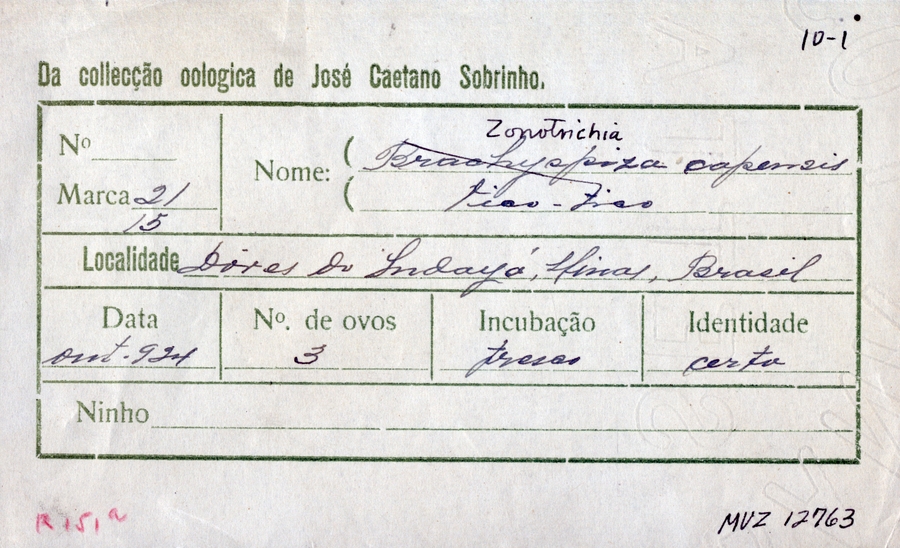 10-1
Da collecção oologica de José Caetano Sobrinho.
Nº
Marca 21
15
Nome:
Zonotrichia
Brachyspiza capensis
Tico-Tico
Localidade Dôres do Indayá, Minas, Brasil
Data
out. 924
Nº. de ovos
3
Incubação
frescos
Identidade
certa
Ninho
R 151a
MVZ 12763